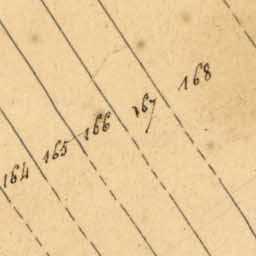 164
165
166
167
168